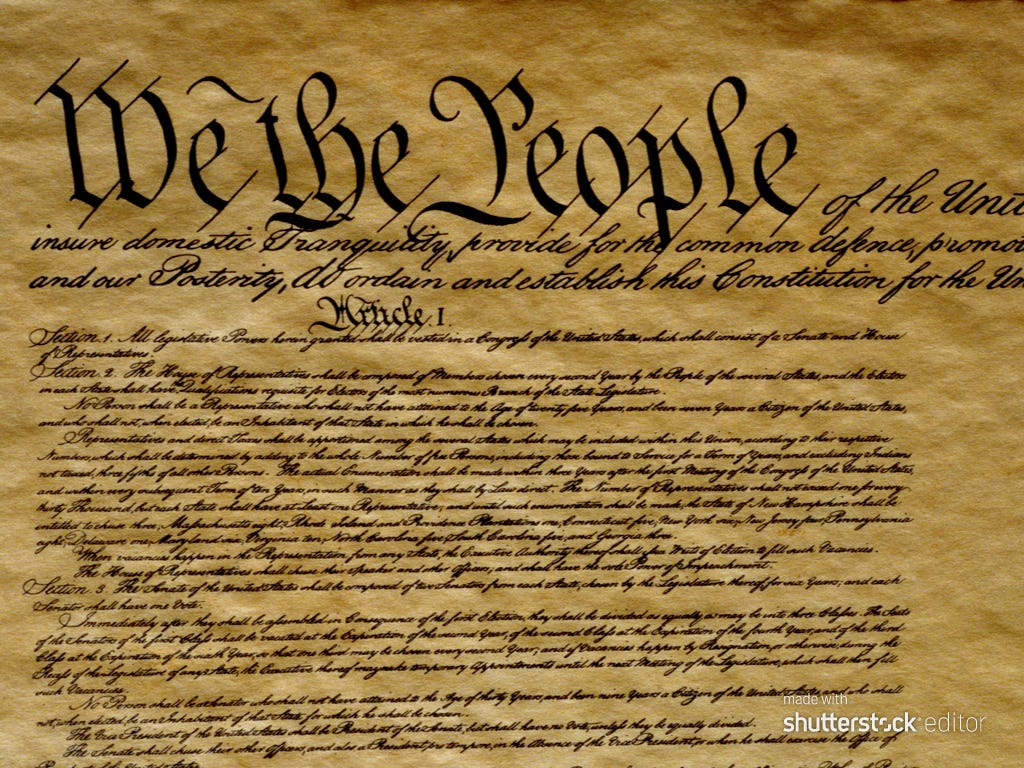 We the People of the Unit
insure domestic Tranquility, provide for the common defence, promot
and our Posterity, do ordain and establish this Constitution for the Un
Article. I.
Section. 1. All legislative Powers herein granted shall be vested in a Congress of the United States, which shall consist of a Senate and House
of Representatives.
Section. 2. The House of Representatives shall be composed of Members chosen every second Year by the People of the several States, and the Electors
in each State shall have the Qualifications requisite for Electors of the most numerous Branch of the State Legislature.
No Person shall be a Representative who shall not have attained to the Age of twenty five Years, and been seven Years a Citizen of the United States,
and who shall not, when elected, be an Inhabitant of that State in which he shall be chosen.
Representatives and direct Taxes shall be apportioned among the several States which may be included within this Union, according to their respective
Numbers, which shall be determined by adding to the whole Number of free Persons, including those bound to Service for a Term of Years, and excluding Indians
not taxed, three fifths of all other Persons. The actual Enumeration shall be made within three Years after the first Meeting of the Congress of the United States,
and within every subsequent Term of ten Years, in such Manner as they shall by Law direct. The Number of Representatives shall not exceed one for every
thirty Thousand, but each State shall have at Least one Representative; and until such enumeration shall be made, the State of New Hampshire shall be
entitled to chuse three, Massachusetts eight, Rhode Island and Providence Plantations one, Connecticut five, New York six, New Jersey four, Pennsylvania
eight, Delaware one, Maryland six, Virginia ten, North Carolina five, South Carolina five, and Georgia three.
When vacancies happen in the Representation from any State, the Executive Authority thereof shall issue Writs of Election to fill such Vacancies.
The House of Representatives shall chuse their Speaker and other Officers; and shall have the sole Power of Impeachment.
Section. 3. The Senate of the United States shall be composed of two Senators from each State, chosen by the Legislature thereof, for six Years; and each
Senator shall have one Vote.
Immediately after they shall be assembled in Consequence of the first Election, they shall be divided as equally as may be into three Classes. The Seats
of the Senators of the first Class shall be vacated at the Expiration of the second Year, of the second Class at the Expiration of the fourth Year, and of the third
Class at the Expiration of the sixth Year, so that one third may be chosen every second Year; and if Vacancies happen by Resignation, or otherwise, during the
Recess of the Legislature of any State, the Executive thereof may make temporary Appointments until the next Meeting of the Legislature, which shall then fill
such Vacancies.
No Person shall be a Senator who shall not have attained to the Age of thirty Years, and been nine Years a Citizen of the United States, and who shall
not, when elected, be an Inhabitant of that State for which he shall be chosen.
The Vice President of the United States shall be President of the Senate, but shall have no Vote, unless they be equally divided.
The Senate shall chuse their other Officers, and also a President pro tempore, in the Absence of the Vice President, or when he shall exercise the Office of
made with
shutterstock editor